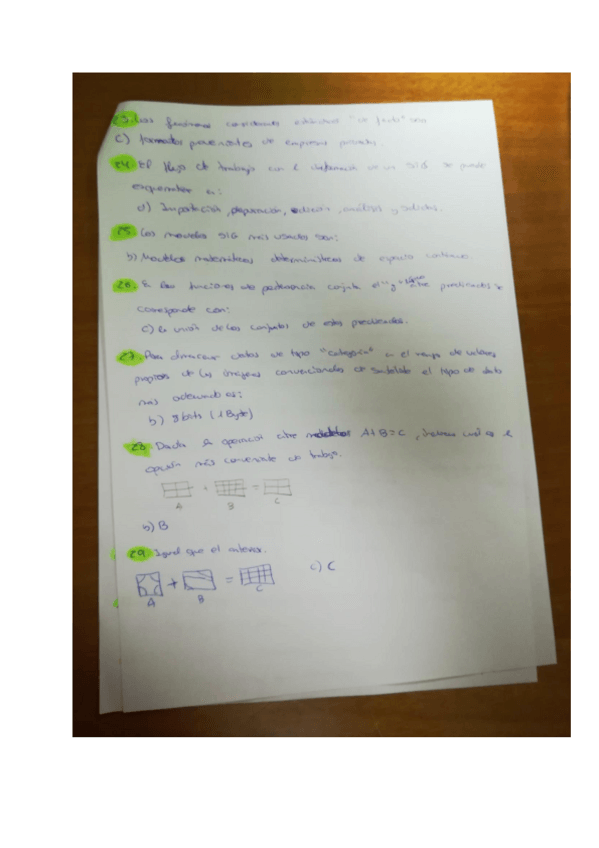 23. Los formatos considerados estándares "de facto" son
c) formatos provenientes de empresas privadas.
24. El flujo de trabajo con la información de un SIG se puede
esquematizar en:
d) Importación, depuración, edición, análisis y salidas.
25. Los modelos SIG más usados son:
b) Modelos matemáticos determinísticos de espacio continuo.
26. En las funciones de pertenencia conjunta el "y" lógico entre predicados se
corresponde con:
c) la unión de los conjuntos de estos predicados.
27. Para almacenar datos de tipo "categoría" en el rango de valores
propios de las imágenes convencionales de satélite el tipo de dato
más adecuado es:
b) 8 bits (1 Byte)
28. Dada la operación entre A+B=C, indica cuál es la
opción más conveniente de trabajo.
+ =
A B C
b) B
29. Igual que el anterior.
+ = c) C
A B C